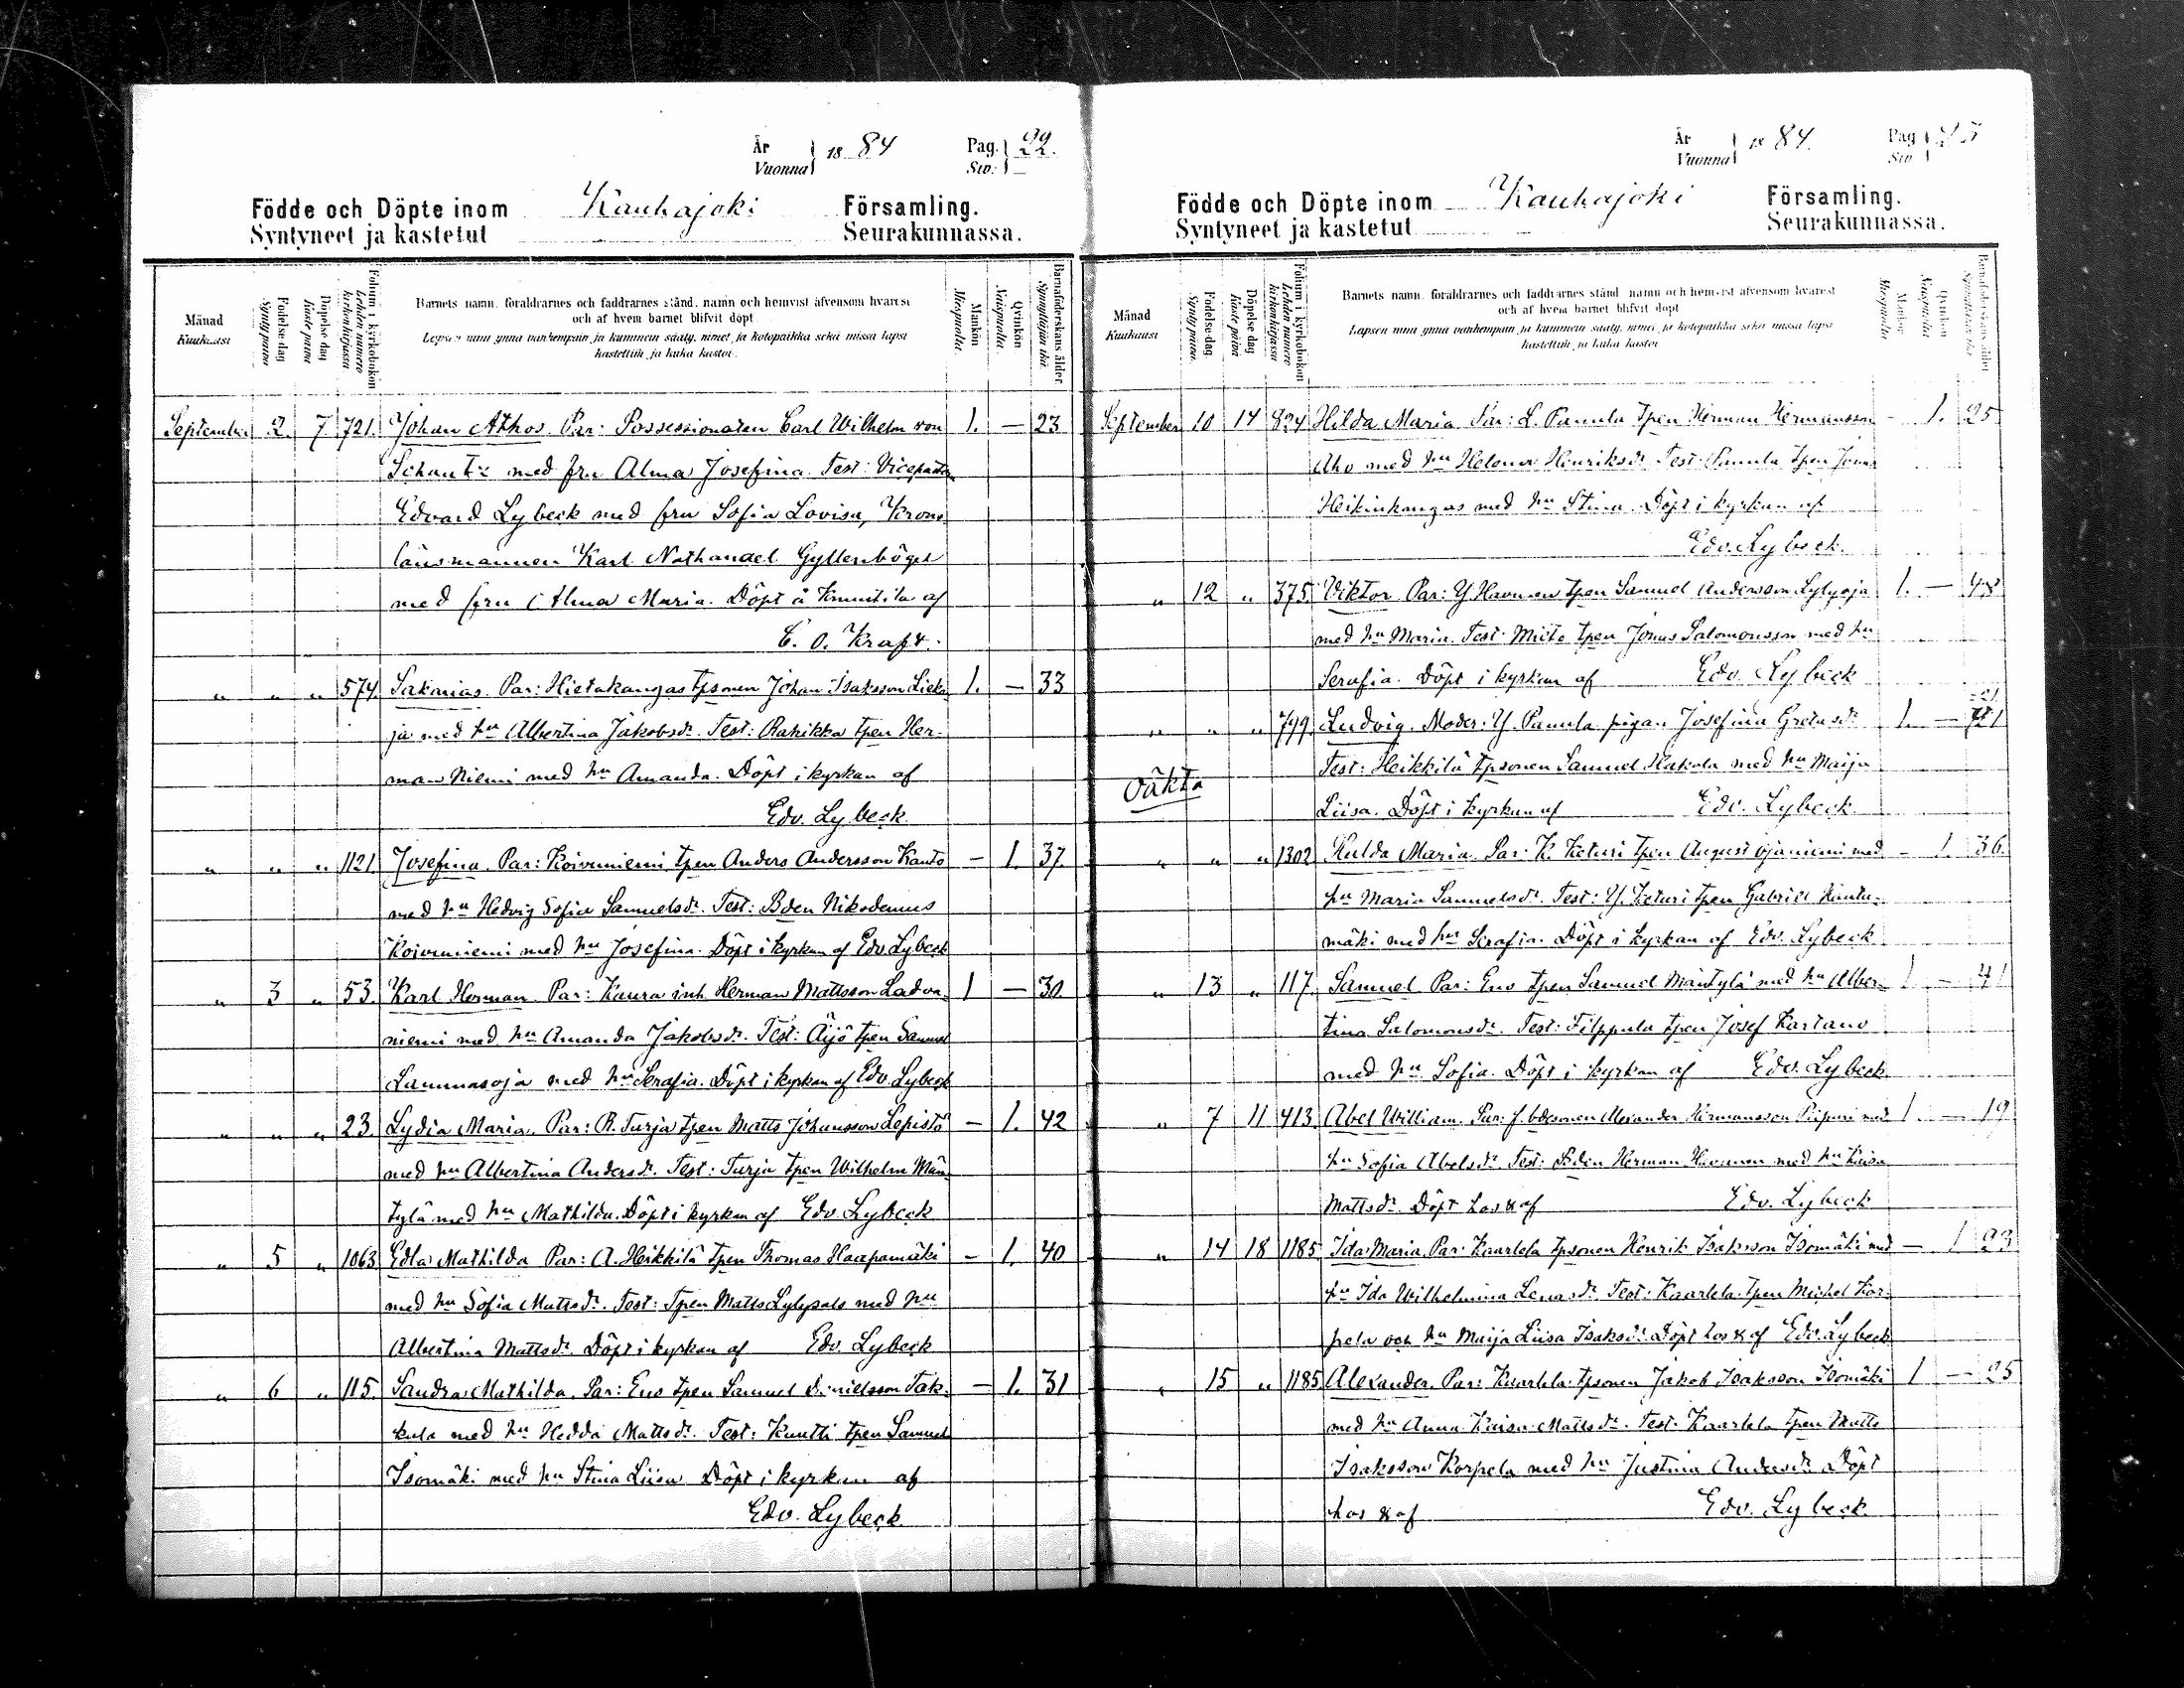 År 1884 Pag. 22.
Vuonna Siv:
Födde och Döpte inom Kauhajoki Församling.
Syntyneet ja kastetut Seurakunnassa.
Månad Kuukausi
Födelse-dag Synty päivä
Döpelse dag Kaste päivä
Folium i kyrkoboken Lehden numero kirkonkirjassa
Barnets namn, föräldrarnes och faddrarnes stånd, namn och hemvist äfvensom hvarest
och af hvem barnet blifvit döpt
Lapsen nimi ynnä vanhempain ja kummein sääty, nimet ja kotopaikka sekä missä lapsi
kastettiin ja kuka kastoi.
Mankön Miespuolia
Qvinkön Naispuolia
Barnaföderskans ålder Synnyttäjän ikä
September 2. 7 721. Johan Athos. Par: Possessionaten Carl Wilhelm von 1. — 23
Schantz med fru Alma Josefina. Test: Vicepastor
Edvard Lybeck med fru Sofia Lovisa, Krono
länsmannen Karl Nathanael Gyllenbögel
med fru Alma Maria. Döpt å Knuutila af
C. O. Kraft.
" " " 574. Sakarias. Par: Hietakangas tpsonen Johan Isaksson Lieka 1. — 33
ja med hu Albertina Jakobsdr. Test: Rahikka tpen Her-
man Niemi med hu Amanda. Döpt i kyrkan af
Edv. Lybeck.
" " " 1121. Josefina. Par: Koivuniemi tpen Anders Andersson Kanto — 1. 37
med hu Hedvig Sofia Samuelsdr. Test: Bden Nikodemus
Koivuniemi med hu Josefina. Döpt i kyrkan af Edv. Lybeck
" 3 " 53. Karl Herman. Par: Kaura inh. Herman Mattsson Ladva- 1 — 30
niemi med hu Amanda Jakobsdr. Test: Äijö tpen Samuel
Lammasoja med hu Serafia. Döpt i kyrkan af Edv. Lybeck
" " " 23. Lydia Maria. Par: R. Turja tpen Matts Johansson Lepistö — 1. 42
med hu Albertina Andersdr. Test: Turja tpen Wilhelm Män-
tylä med hu Mathilda. Döpt i kyrkan af Edv. Lybeck
" 5 " 1063 Edla Mathilda Par: A. Heikkilä tpen Thomas Haapamäki — 1. 40
med hu Sofia Mattsdr. Test: Tpen Matts Lylysalo med hu
Albertina Mattsdr. Döpt i kyrkan af Edv. Lybeck
" 6 " 115. Sandra Mathilda. Par: Eno tpen Samuel Danielsson Tak- — 1. 31
kula med hu Hedda Mattsdr. Test: Knutti tpen Samuel
Isomäki med hu Stina Liisa Döpt i kyrkan af
Edv. Lybeck.
År 1884. Pag 23
Vuonna Siv
Födde och Döpte inom Kauhajoki Församling.
Syntyneet ja kastetut Seurakunnassa.
Månad Kuukausi
Födelse-dag Synty päivä
Döpelse dag Kaste päivä
Folium i kyrkoboken Lehden numero kirkonkirjassa
Barnets namn, föräldrarnes och faddrarnes stånd, namn och hemvist äfvensom hvarest
och af hvem barnet blifvit döpt
Lapsen nimi ynnä vanhempain ja kummein sääty, nimet ja kotopaikka sekä missä lapsi
kastettiin ja kuka kastoi
Mankön Miespuolia
Qvinkön Naispuolia
Barnaföderskans ålder Synnyttäjän ikä
September 10 14 824 Hilda Maria Par: L. Panula tpen Herman Hermansson — 1. 25
Aho med hu Helena Henriksdr Test: Panula tpen Jonas
Heikinkangas med hu Stina. Döpt i kyrkan af
Edv. Lybeck.
" 12 " 375. Viktor. Par: Y. Havunen tpen Samuel Andersson Lylyoja 1. —
med hu Maria. Test: Mieto tpen Jonas Salomonsson med hu
Serafia. Döpt i kyrkan af Edv. Lybeck
" " " 799 Ludvig. Moder: Y. Panula pigan Josefina Gretasdr 1. — 21
Test: Heikkilä tpsonen Samuel Hakola med hu Maija
Oäkta
Liisa. Döpt i kyrkan af Edv. Lybeck.
" " " 1302 Hulda Maria. Par: K. Keturi tpen August Ojaniemi med — 1. 36.
hu Maria Samuelsdr. Test: Y. Keturi tpen Gabriel Hintu-
mäki med hu Serafia. Döpt i kyrkan af Edv. Lybeck
" 13 " 117. Samuel Par: Eno tpen Samuel Mäntylä med hu Alber- 1. — 41
tina Salomonsdr. Test: Filppula tpen Josef Kartano
med hu Sofia. Döpt i kyrkan af Edv. Lybeck.
" 7 11 413. Abel William. Par: J. bdesonen Alexander Hermansson Piipari med 1. — 19
hu Sofia Abelsdr. Test: Bden Herman Havunen med hu Kaisa
Mattsdr. Döpt hos & af Edv. Lybeck
" 14 18 1185. Ida Maria. Par: Kaarlela tpsonen Henrik Isaksson Isomäki med — 1 23
hu Ida Wilhelmina Lenasdr. Test: Kaarlela tpen Michel Kor-
pela och hu Maija Liisa Isaksdr. Döpt hos & af Edv. Lybeck
" 15 " 1185 Alexander. Par: Kaarlela tpsonen Jakob Isaksson Isomäki 1 — 25
med hu Anna Kaisa Mattsdr. Test: Kaarlela tpen Matts
Isaksson Korpela med hu Justina Andersdr. Döpt
hos & af Edv. Lybeck.